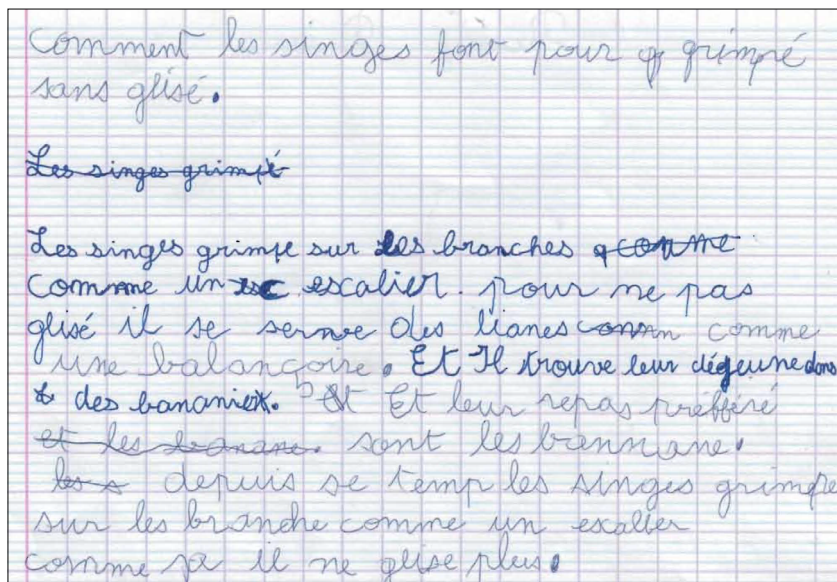 Comment les singes font pour g grimpé
sans glisé.
Les singes grimpé
Les singes grimpe sur les branches comme
comme un esc escalier. pour ne pas
glisé il se serve des lianes comme
une balançoire. Et Il trouve leur déjeune dans
des bananier. Et Et leur repas préfféré
et les banane. sont les bannane.
les s depuis se temp les singes grimpe
sur les branche comme un exalier
comme sa il ne glise plus.